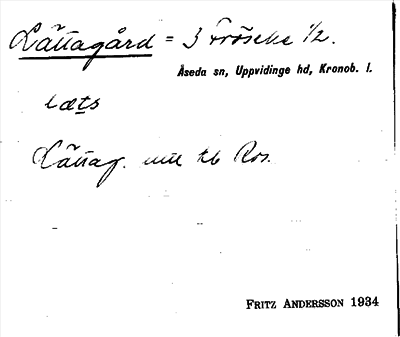 Lättagård = 3 Fröseke 1/2.
Åseda sn, Uppvidinge hd, Kronob. l.
læts
Lättag. nu tb Ros.
FRITZ ANDERSSON 1934